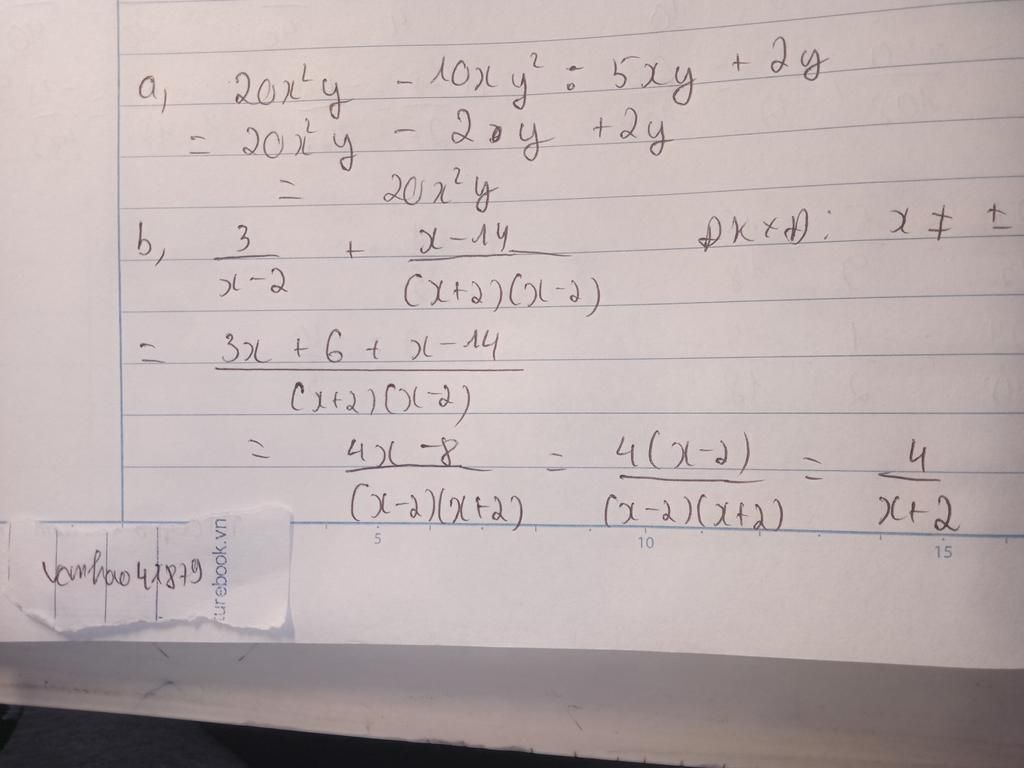 a, 20x²y - 10xy² : 5xy + 2y
= 20x²y - 2y + 2y
= 20x²y
b, 3/(x-2) + (x-14)/((x+2)(x-2)) ĐKXĐ: x ≠ ±
= (3x + 6 + x - 14)/((x+2)(x-2))
= (4x - 8)/((x-2)(x+2)) = 4(x-2)/((x-2)(x+2)) = 4/(x+2)
5 10 15
urebook.vn